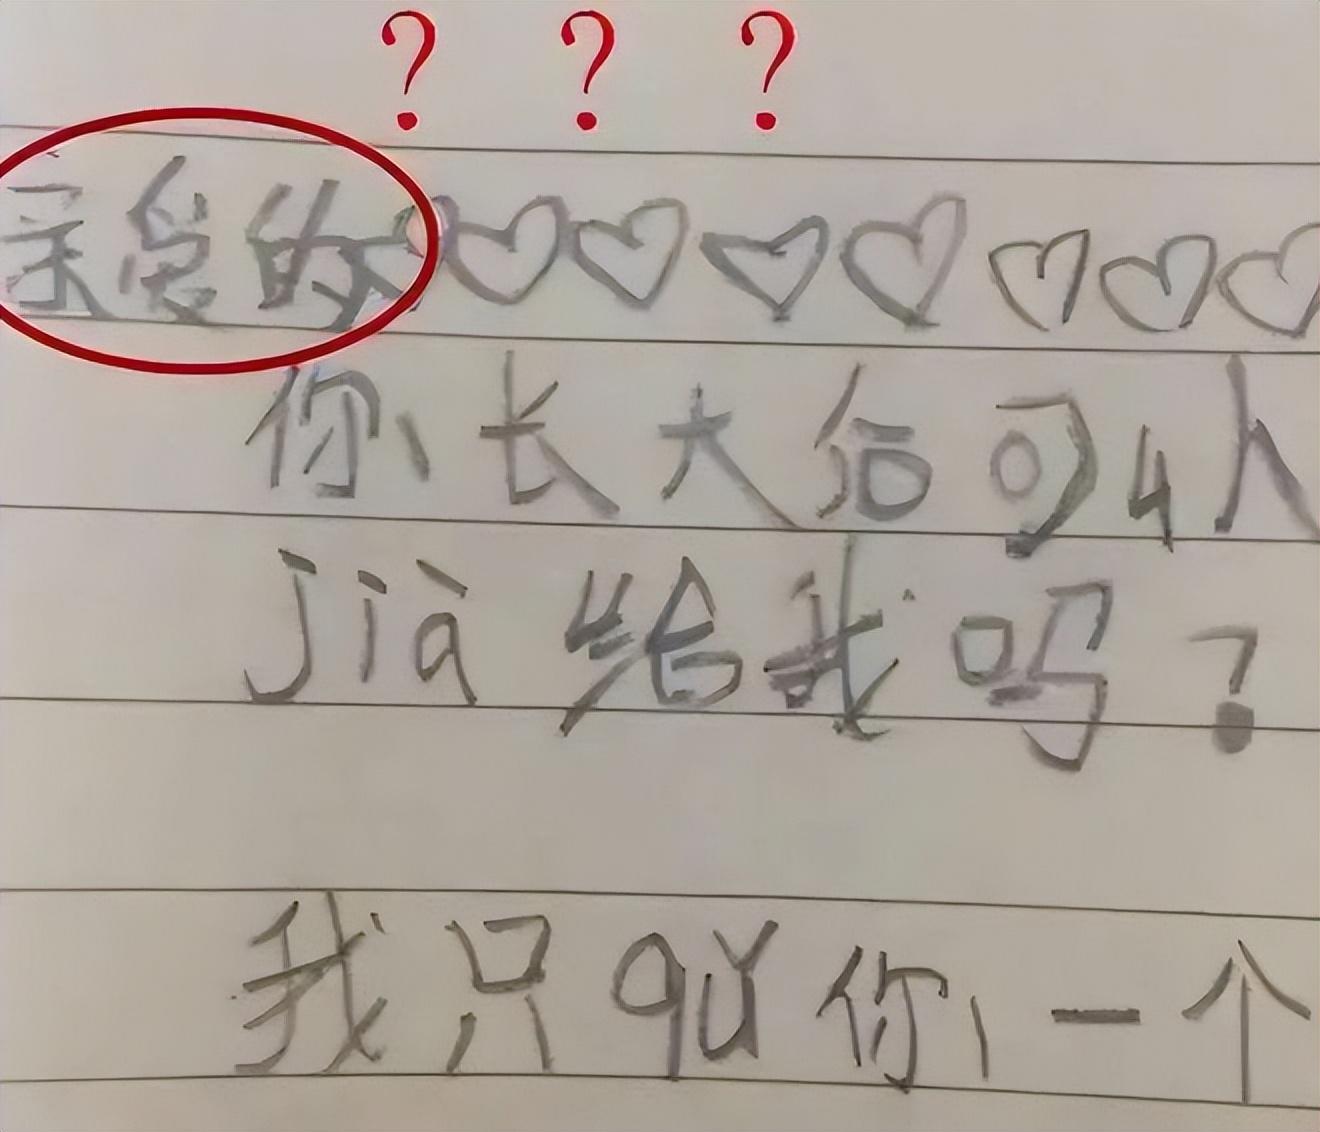 ? ? ?
亲爱的
你长大后可以
jià 给我吗?
我只 qǔ 你一个